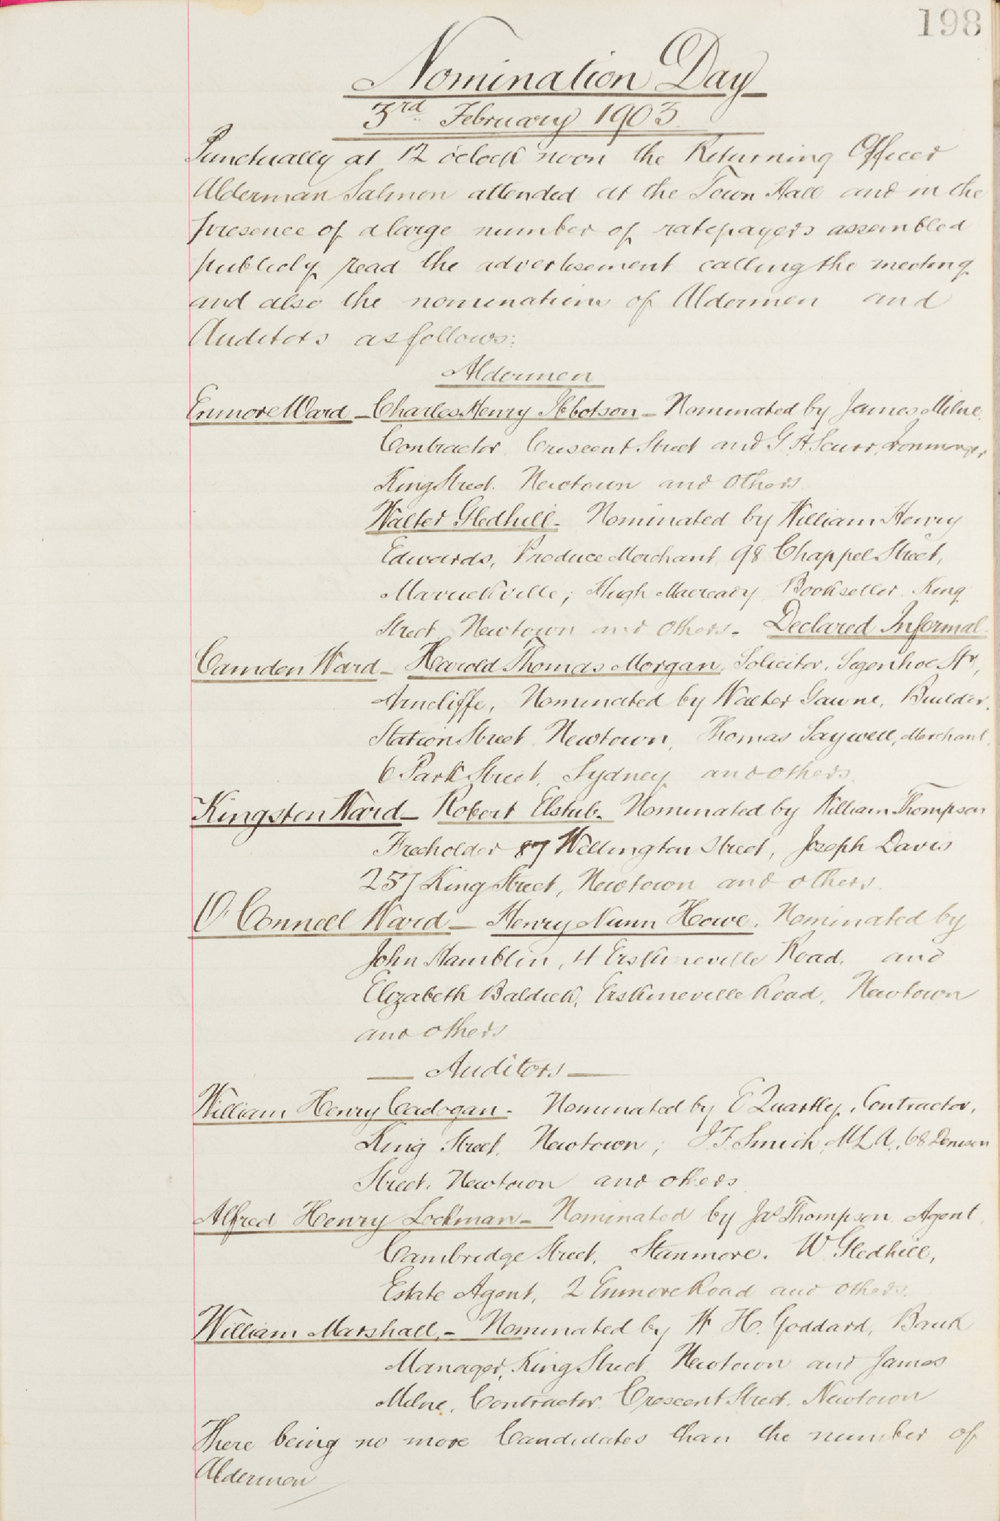 198
Nomination Day
3rd February 1903
Punctually at 12 o'clock noon the Returning Officer
Alderman Salmon attended at the Town Hall and in the
presence of a large number of ratepayers assembled
publicly read the advertisement calling the meeting
and also the nominations of Aldermen and
Auditors as follows:
Aldermen
Enmore Ward - Charles Henry Ibbotson - Nominated by James Milne,
Contractor, Crescent Street and G. A. Scurr, Ironmonger
King Street. Newtown and others.
Walter Gledhill - Nominated by William Henry
Edwards, Produce Merchant, 98 Chappel Street,
Marrickville; Hugh Macready Bookseller King
Street Newtown and others - Declared Informal.
Camden Ward - Harold Thomas Morgan, Solicitor, Segenhoe St,
Arncliffe, Nominated by Walter Gaune, Builder,
Station Street Newtown, Thomas Saywell, Merchant,
6 Park Street, Sydney and others.
Kingston Ward - Robert Elstub - Nominated by William Thompson
Freeholder 87 Wellington Street, Joseph Davis
257 King Street, Newtown and others.
O'Connell Ward - Henry Nunn Howe. Nominated by
John Hamblin, 4 Erskineville Road, and
Elizabeth Baldick, Erskineville Road, Newtown
and others
- Auditors -
William Henry Cadogan - Nominated by E Quartley, Contractor,
King Street, Newtown; J. F. Smith, M.L.A., 68 Denison
Street, Newtown and others
Alfred Henry Lockman - Nominated by Jas Thompson, Agent,
Cambridge Street, Stanmore. W. Gledhill,
Estate Agent, 2 Enmore Road and others.
William Marshall, - Nominated by W. H. Goddard, Bank
Manager, King Street, Newtown and James
Milne, Contractor, Crescent Street, Newtown
There being no more Candidates than the number of
Aldermen